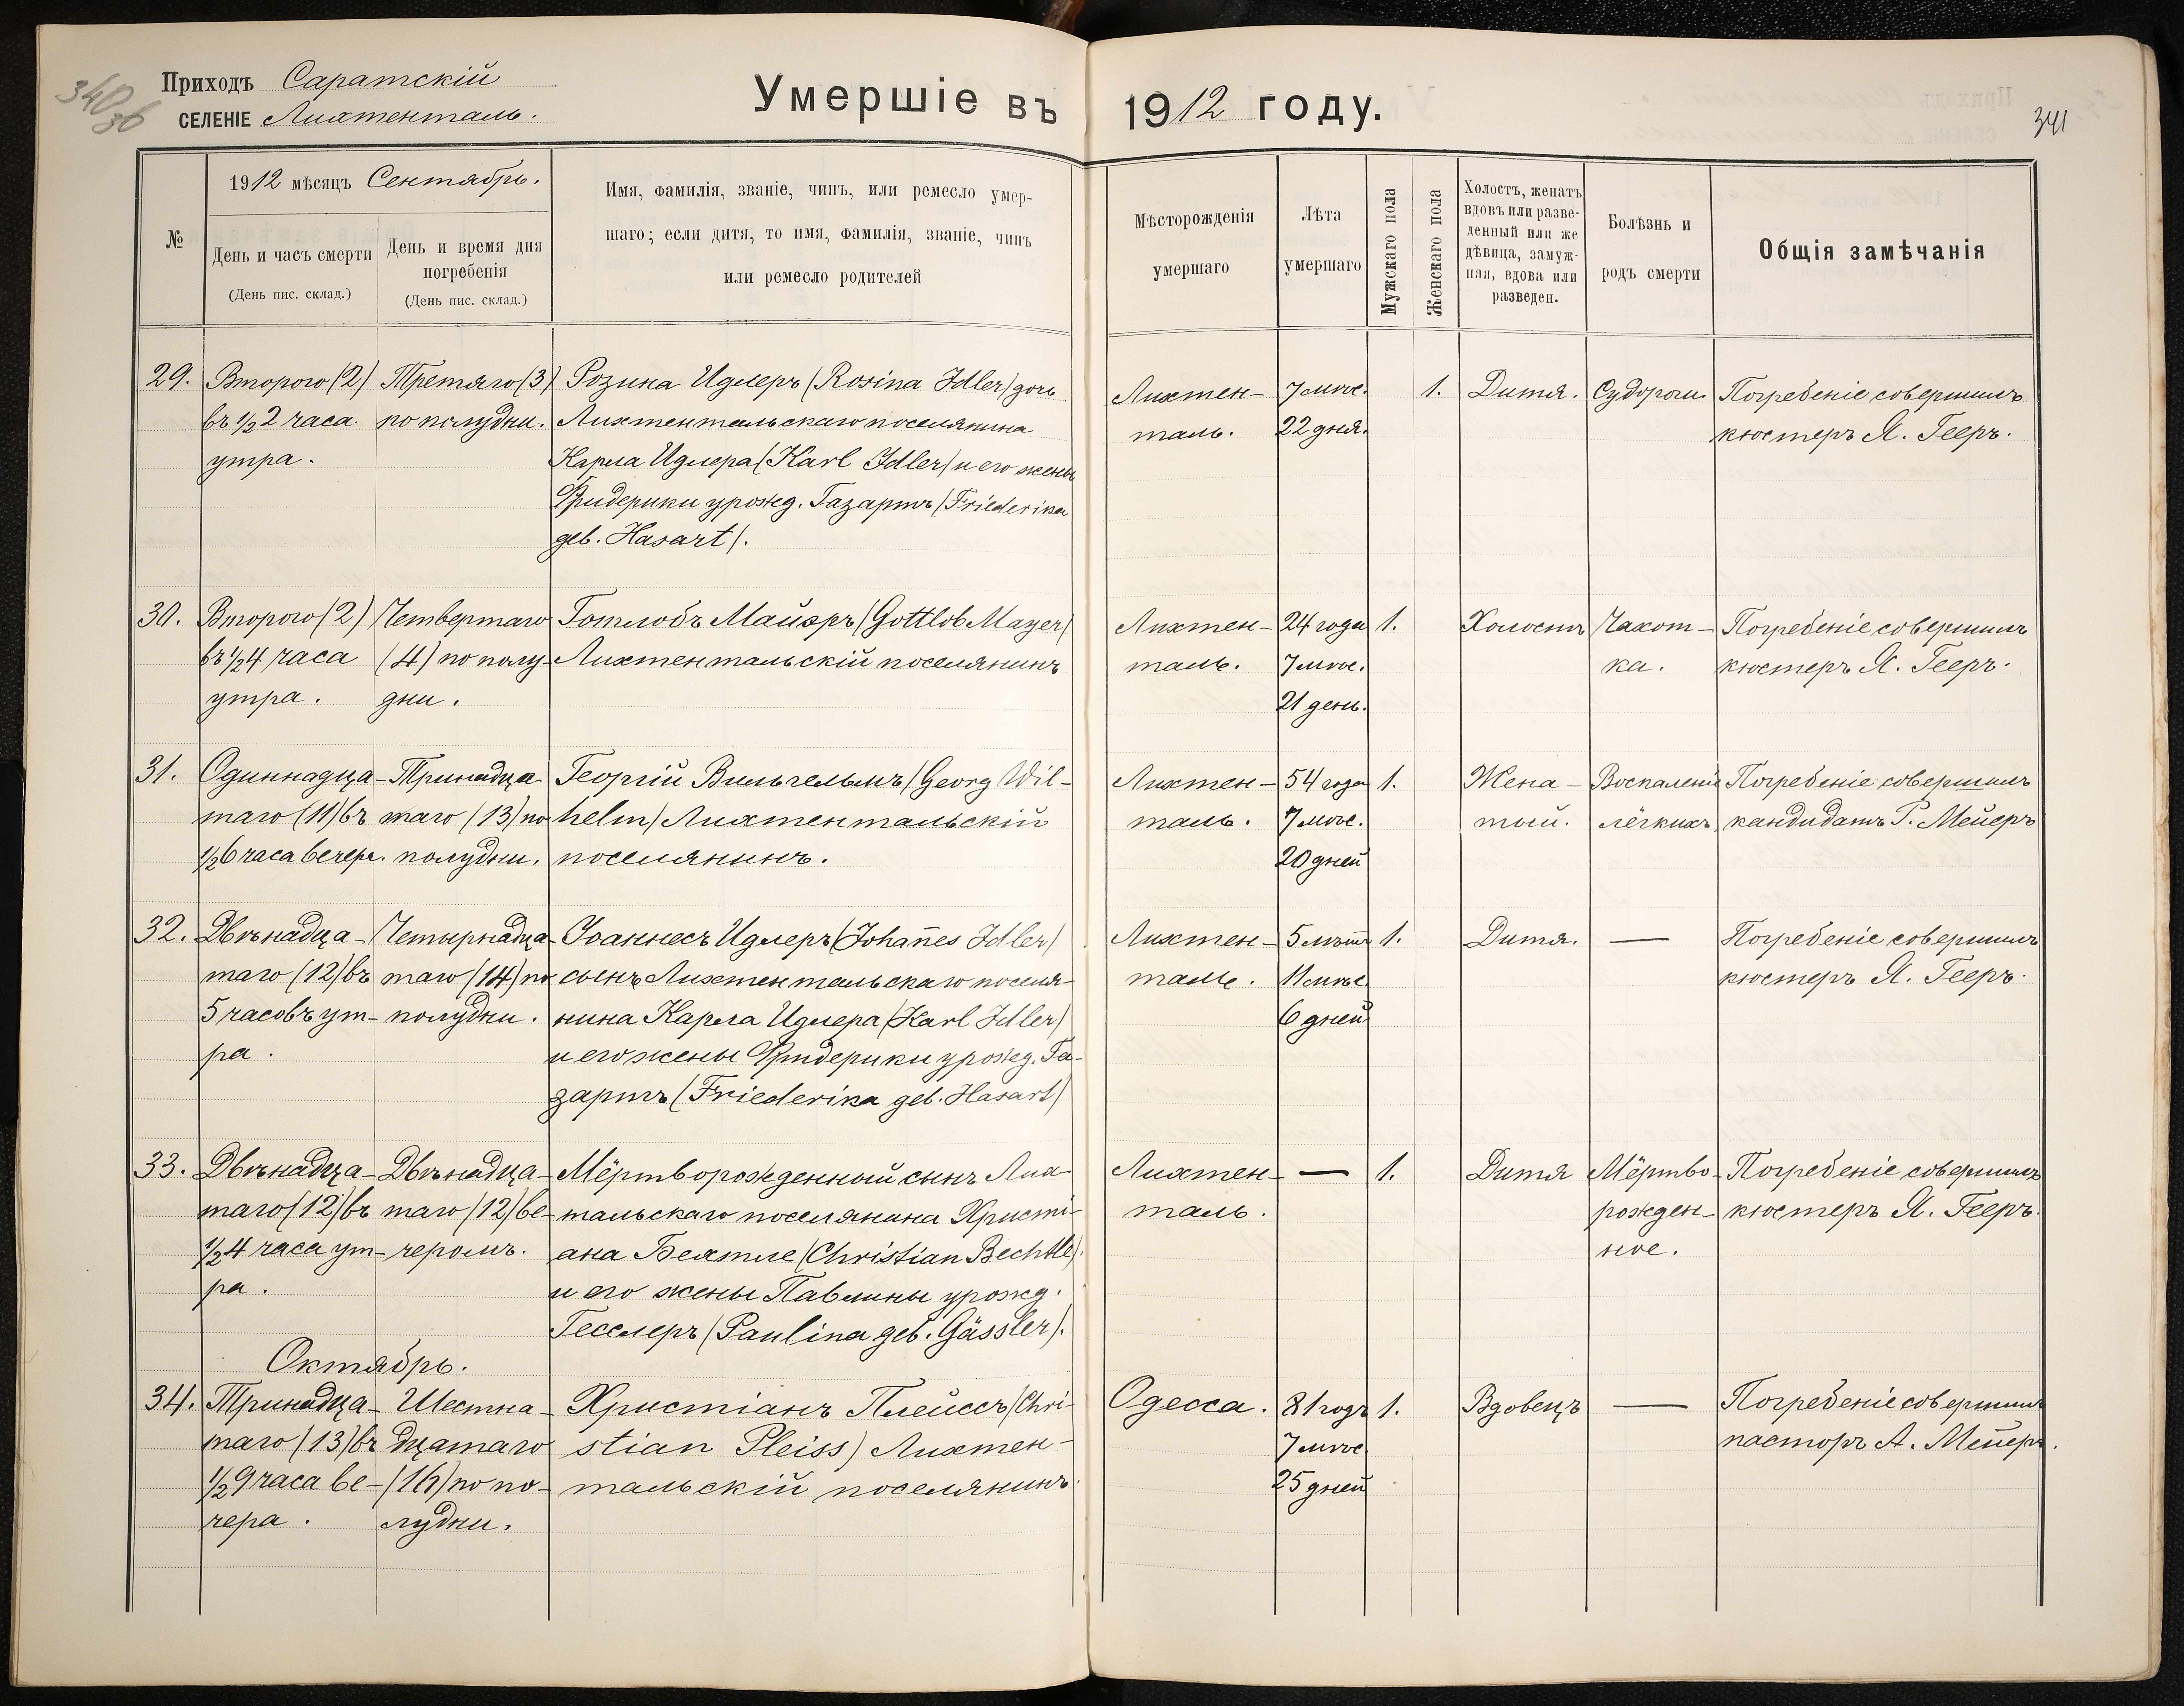 340
об
Приходъ Саратскій
СЕЛЕНІЕ Лихтенталь.
Умершіе въ 1912 году.
341
№
1912 мѣсяцъ Сентябрь.
День и часъ смерти
(День пис. склад.)
День и время дня
погребенія
(День пис. склад.)
Имя, фамилія, званіе, чинъ, или ремесло умер-
шаго; если дитя, то имя, фамилія, званіе, чинъ
или ремесло родителей
Мѣсторожденія
умершаго
Лѣта
умершаго
Мужскаго пола
Женскаго пола
Холостъ, женатъ
вдовъ или разве-
денный или же
дѣвица, замуж-
няя, вдова или
разведен.
Болѣзнь и
родъ смерти
Общія замѣчанія
29.
Второго (2)
въ ½ 2 часа
утра.
Третяго (3)
по полудни.
Розина Идлеръ (Rosina Idler) дочь
Лихтентальскаго поселянина
Карла Идлера (Karl Idler) и его жены
Фридерики урожд. Газартъ (Friederika
geb. Hasart).
Лихтен-
таль.
7 мѣс.
22 дня.
1.
Дитя.
Судороги
Погребеніе совершилъ
кюстеръ Я. Гееръ.
30.
Второго (2)
въ ½4 часа
утра.
Четвертаго
(4) по полу-
дни.
Готлобъ Майэръ (Gottlob Mayer)
Лихтентальскій поселянинъ
Лихтен-
таль.
24 года
7 мѣс.
21 день.
1.
Холостъ
Чахот-
ка.
Погребеніе совершилъ
кюстеръ Я. Гееръ.
31.
Одиннадца-
таго (11) въ
½6 часа вечера.
Тринадца-
таго (13) по
полудни.
Георгій Вильгельмъ (Georg Wil-
helm) Лихтентальскій
поселянинъ.
Лихтен-
таль.
54 года
7 мѣс.
20 дней
1.
Жена-
тый.
Воспаленіе
лёгкихъ
Погребеніе совершилъ
кандидатъ Г. Мейеръ
32.
Двѣнадца-
таго (12) въ
5 часовъ ут-
ра.
Четырнадца-
таго (14) по
полудни.
Іоаннесъ Идлеръ (Johan̄es Idler)
сынъ Лихтентальскаго поселя-
нина Карла Идлера (Karl Idler)
и его жены Фридерики урожд. Га-
зартъ (Friederika geb. Hasart)
Лихтен-
таль.
5 лѣтъ
11 мѣс.
6 дней
1.
Дитя.
—
Погребеніе совершилъ
кюстеръ Я. Гееръ.
33.
Двѣнадца-
таго (12) въ
½4 часа ут-
ра.
Двѣнадца-
таго (12) ве-
черомъ.
Мёртворожденный сынъ Лих-
тальскаго поселянина Христі-
ана Бехтле (Christian Bechtle)
и его жены Павлины урожд.
Гесслеръ (Paulina geb. Gässler).
Лихтен-
таль.
—
1.
Дитя
Мёртво-
рожден-
ное.
Погребеніе совершилъ
кюстеръ Я. Гееръ.
Октябрь.
34.
Тринадца-
таго (13) въ
½9 часа ве-
чера.
Шестна-
дцатаго
(16) по по-
лудни.
Христіанъ Плейссъ (Chri-
stian Pleiss) Лихтен-
тальскій поселянинъ
Одесса.
81 годъ
7 мѣс
25 дней
1.
Вдовецъ
—
Погребеніе совершилъ
пасторъ А. Мейеръ.